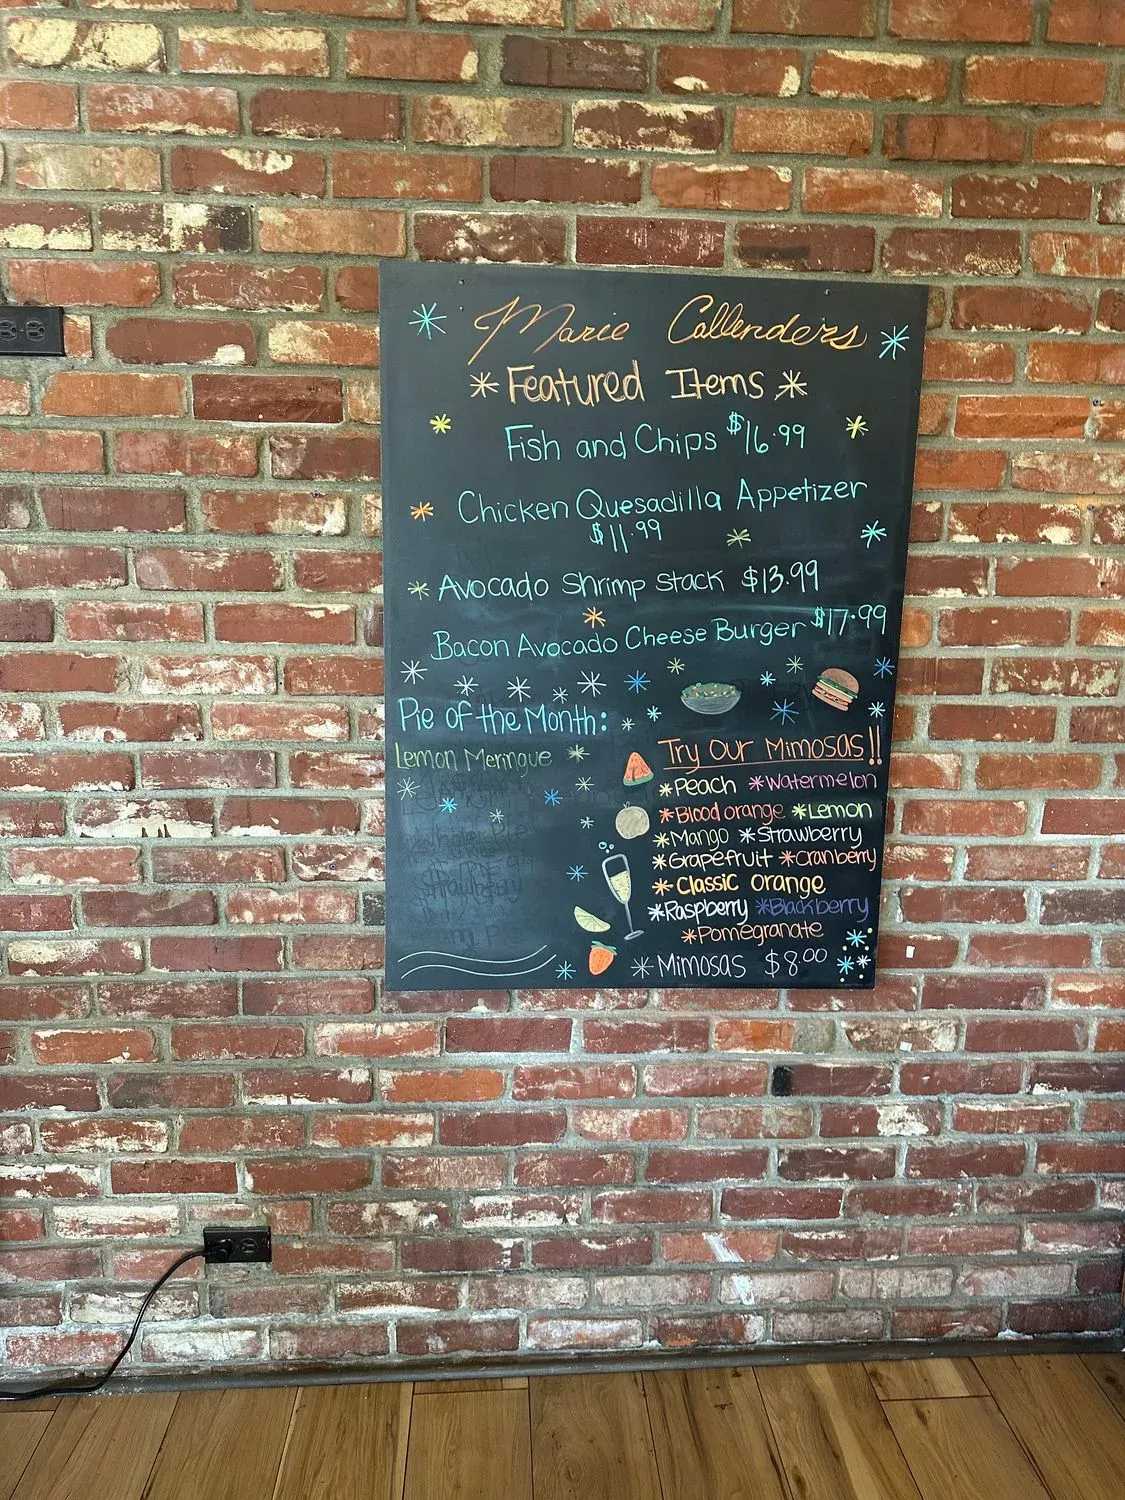 Marie Callenders
*Featured Items*
Fish and Chips $16.99
Chicken Quesadilla Appetizer
$11.99
Avocado Shrimp Stack $13.99
Bacon Avocado Cheese Burger $17.99
Pie of the Month:
Lemon Meringue
Try Our Mimosas!!
*Peach *Watermelon
*Blood orange *Lemon
*Mango *Strawberry
*Grapefruit *Cranberry
*Classic orange
*Raspberry *Blackberry
*Pomegranate
*Mimosas $8.00